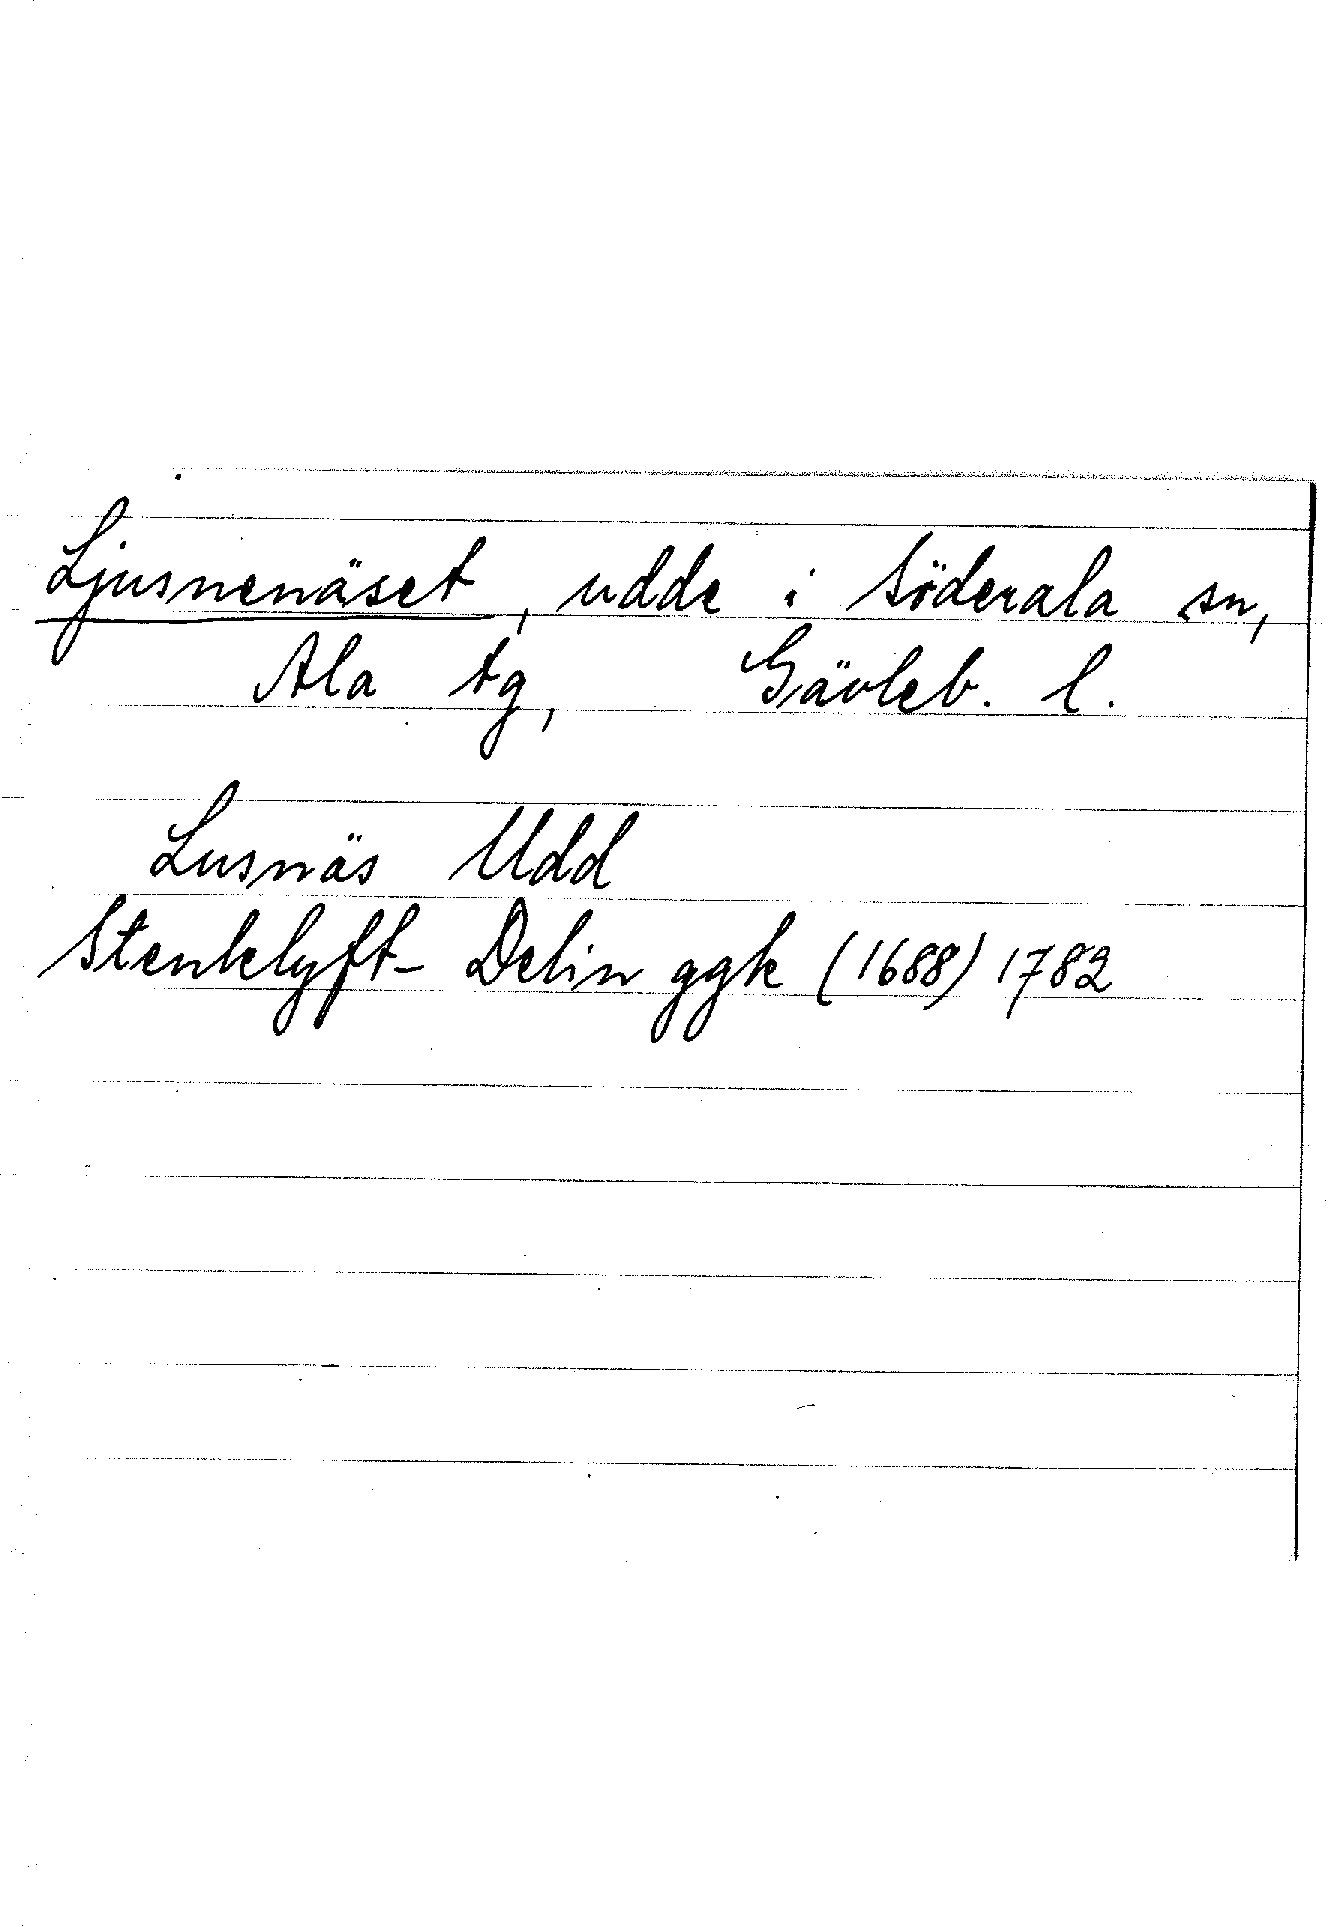 Ljusnenäset, udde i Söderala sn,
Ala tg, Gävleb. l.
Lusnäs Udd
Stenklyft- Delin ggk (1688) 1782